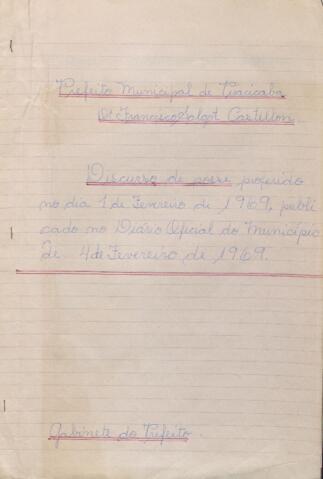 Prefeito Municipal de Piracicaba
Dr Francisco Salgot Castillon.
Discurso de posse proferido
no dia 1 de Fevereiro de 1969, publi
cado no Diário Oficial do Municipio
de 4 de Fevereiro de 1969.
Gabinete do Prefeito.